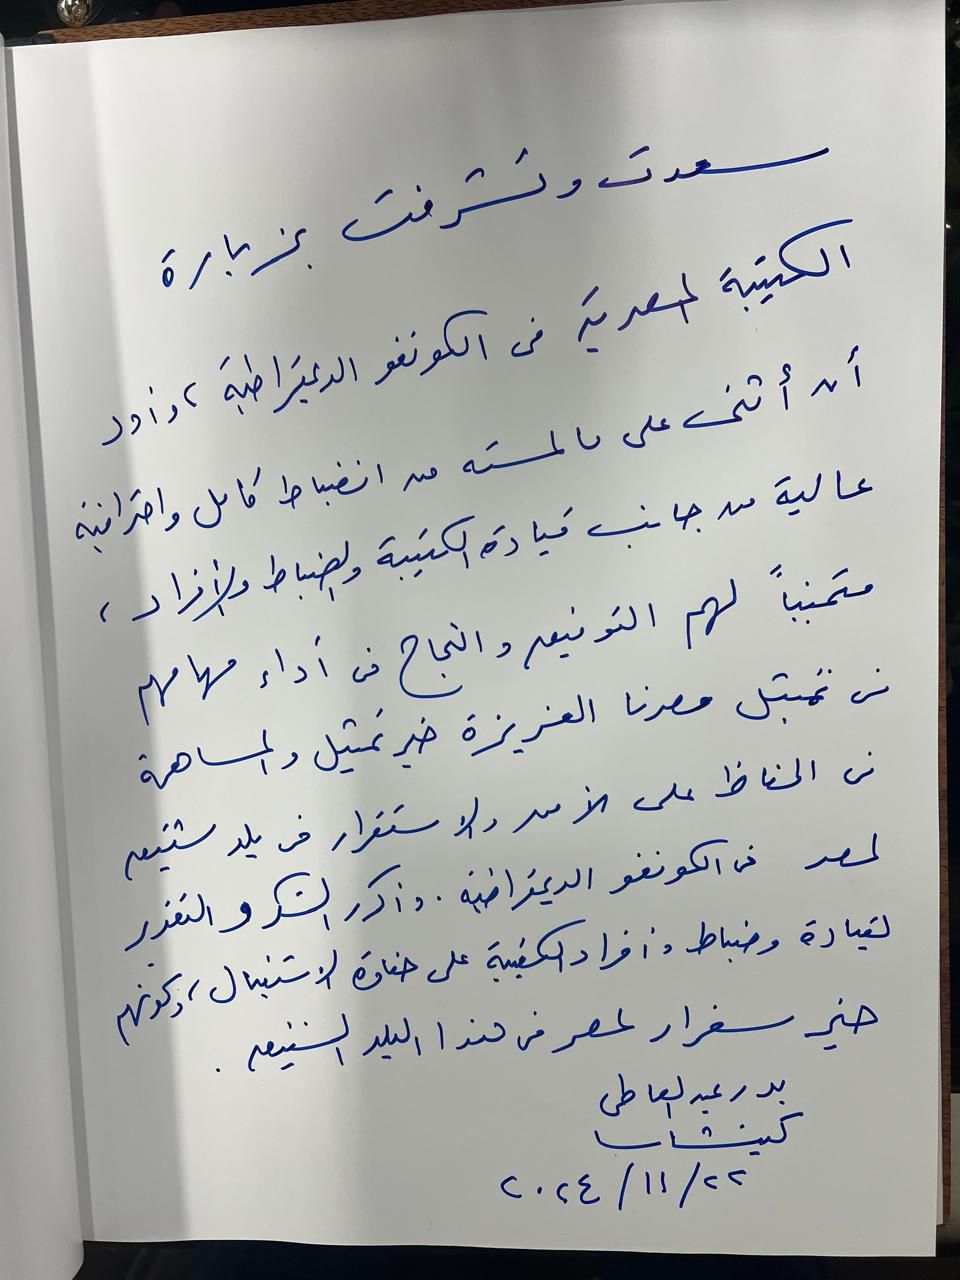 سعدت وتشرفت بزيارة
الكتيبة المصرية فى الكونغو الديمقراطية ، وأود
أن أثنى على ما لمسته من انضباط كامل واحترافية
عالية من جانب قيادة الكتيبة والضباط والأفراد ،
متمنياً لهم التوفيق والنجاح فى أداء مهامهم
فى تمثيل مصرنا العزيزة خير تمثيل والمساهمة
فى الحفاظ على الأمن والاستقرار فى بلد شقيق
لمصر فى الكونغو الديمقراطية . وأكرر الشكر و التقدير
لقيادة وضباط وأفراد الكتيبة على حفاوة الاستقبال ، وكونهم
خير سفراء لمصر فى هذا البلد الشقيق .
بدر عبد العاطى
كينشاسا
٢٢/١١/٢٠٢٤